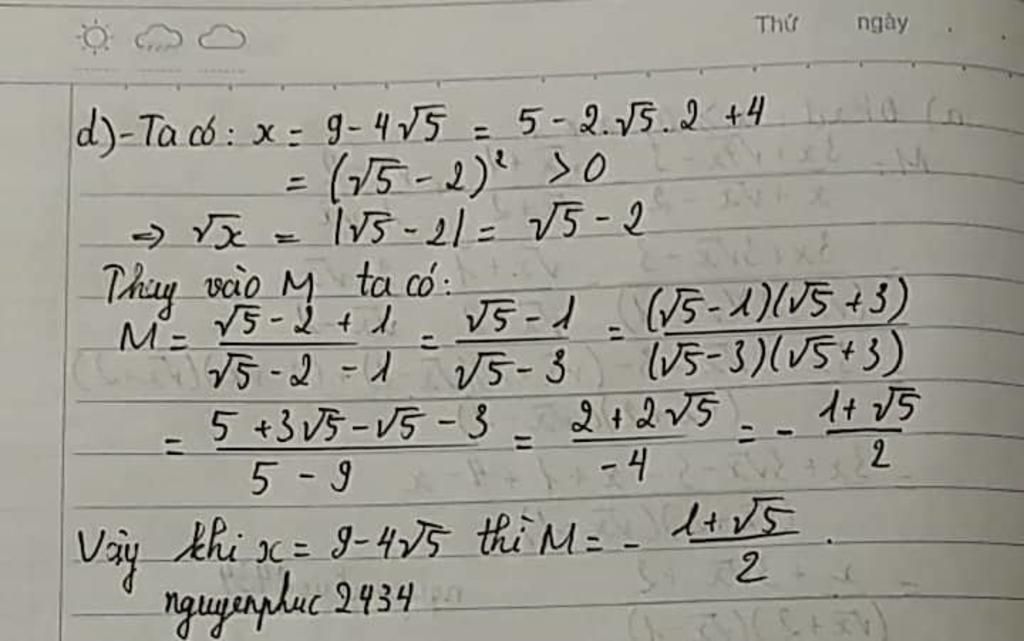 Thứ ngày
d)-Ta có: x = 9-4√5 = 5-2.√5.2+4
= (√5-2)² >0
⇒ √x = |√5-2| = √5-2
Thay vào M ta có:
M = (√5-2+1)/(√5-2-1) = (√5-1)/(√5-3) = ((√5-1)(√5+3))/((√5-3)(√5+3))
= (5+3√5-√5-3)/(5-9) = (2+2√5)/(-4) = - (1+√5)/2
Vậy khi x = 9-4√5 thì M = - (1+√5)/2 .
nguyenphuc 2434